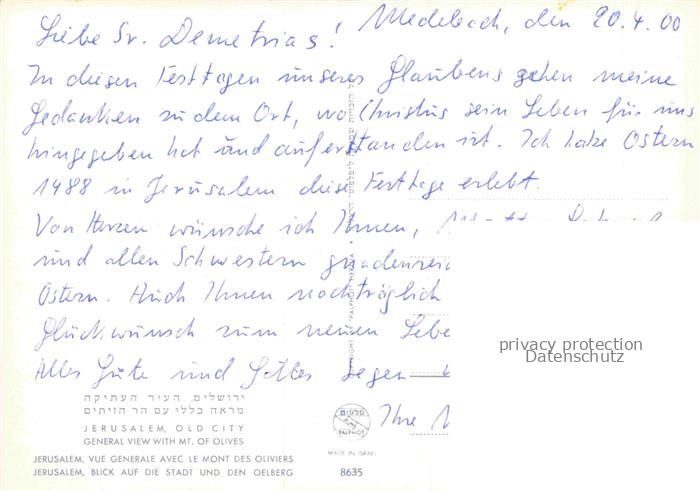 Medebach, den 20.4.00
Liebe Sr. Demetrias!
In diesen Festtagen unseres Glaubens gehen meine
Gedanken zu dem Ort, wo Christus sein Leben für uns
hingegeben hat und auferstanden ist. Ich habe Ostern
1988 in Jerusalem diese Festtage erlebt.
Von Herzen wünsche ich Ihnen,
und allen Schwestern gnadenreic
Ostern. Auch Ihnen nachträglich
Glückwunsch zum neuen Lebe
Alles Gute und Gottes Segen
Ihre
privacy protection
Datenschutz
ירושלים, העיר העתיקה
מראה כללי עם הר הזיתים
JERUSALEM, OLD CITY
GENERAL VIEW WITH MT. OF OLIVES
JERUSALEM, VUE GENERALE AVEC LE MONT DES OLIVIERS
JERUSALEM, BLICK AUF DIE STADT UND DEN OELBERG
פלפוט
PALPHOT
MADE IN ISRAEL
8635
PALPHOT HERZLIA